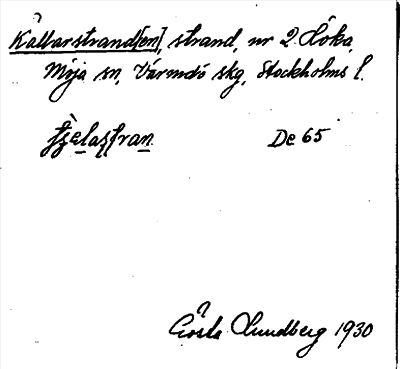 Källarstrand[en], strand, nr 2 Löka,
Möja sn, Värmdö skg, Stockholms l.
De 65
Gösta Lundberg 1930